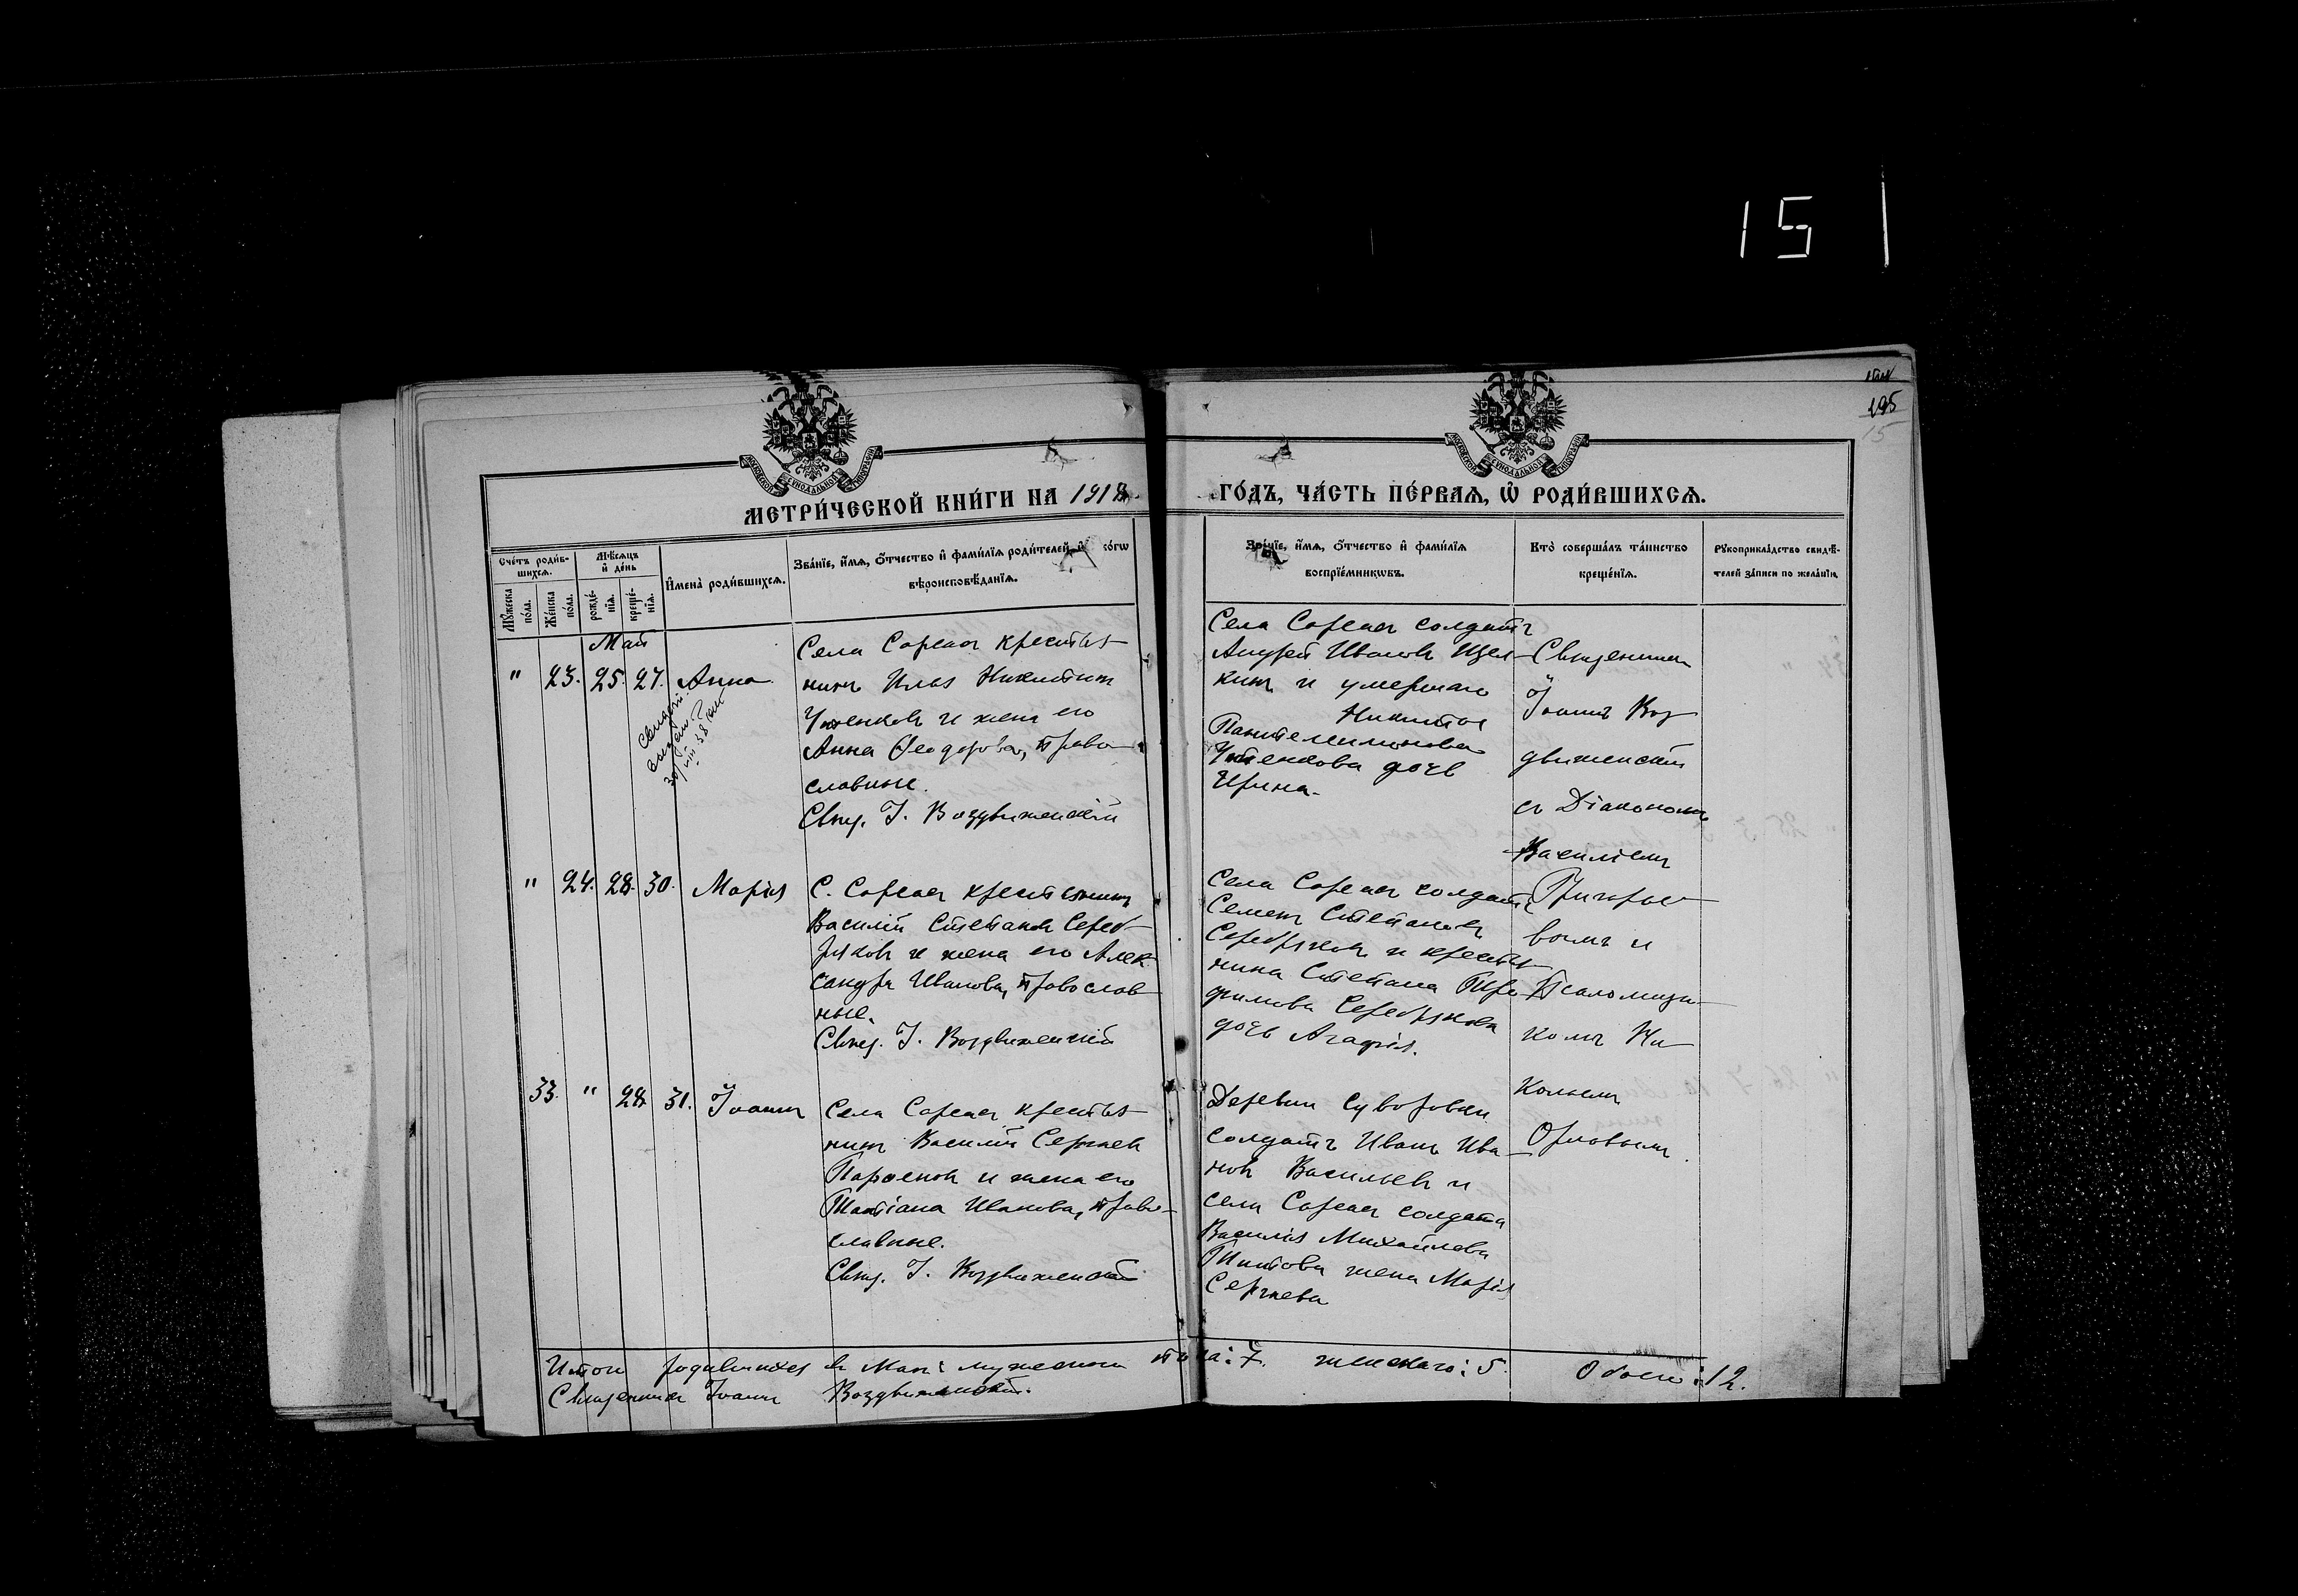 15
195
15
МОСКОВСКОЙ СѴНОДАЛЬНОЙ ТИПОГРАФІИ
МЕТРИ́ЧЕСКОЙ КНИ́ГИ НА 1918
МОСКОВСКОЙ СѴНОДАЛЬНОЙ ТИПОГРАФІИ
ГО́ДЪ, ЧА́СТЬ ПЕ́РВАѦ, Ѽ РОДИ́ВШИХСѦ.
Сче́тъ роди́в-
шихсѧ.
Мꙋ́жеска
по́ла.
Же́нска
по́ла.
Мѣ́сѧцъ
и҆ де́нь
рожде́-
нїѧ.
креще́-
нїѧ.
И҆мена̀ роди́вшихсѧ.
Зва́нїе, и҆́мѧ, ѻ҆́тчество и҆ фами́лїѧ роди́телей, и҆ ко́гѡ
вѣроисповѣ́данїѧ.
Зва́нїе, и҆́мѧ, ѻ҆́тчество и҆ фами́лїѧ
воспрїе́мникѡвъ.
Кто̀ соверша́лъ та́инство
креще́нїѧ.
Рꙋкоприкла́дство свидѣ́-
телей за́писи по жела́нїю.
Май
" 23. 25. 27. Анна
Села Сореас крестья-
нинъ Илья Никитин
Утенков и жена его
Анна Ѳеодорова, право-
славные.
Свящ. І. Воздвиженскій
Села Сореас солдатъ
Андрей Иванов Щел-
кин и умершаго
Никиты
Пантелимонова
Утенкова дочь
Ирина.
Священник
Іоаннъ Воз
движенскій
съ Діакономъ
Василіемъ
Григорье
вымъ и
Псаломщи-
комъ Ни
колаемъ
Орловымъ.
" 24. 28. 30. Марія
С. Сореас крестьянинъ
Василій Степанов Сереб-
ряков и жена его Алек-
сандра Иванова, православ-
ные.
Свящ. І. Воздвиженскій
Села Сореас солдатъ
Семенъ Степанов
Серебряков и крестья-
нина Степана Тро-
фимова Серебрякова
дочь Агафія.
33. " 28 31. Іоаннъ
Села Сореас крестья-
нинъ Василій Сергеев
Парфенов и жена его
Татіана Иванова, право-
славные.
Свящ. І. Воздвиженскій
Деревни Суворовки
солдатъ Иванъ Ива-
нов Васильев и
села Сореас солдата
Василія Михайлова
Титова жена Марія
Сергеева
Итого родившихся в Мае: мужескаго пола: 7. женскаго: 5. Обоего: 12.
Священник Іоаннъ Воздвиженскій.